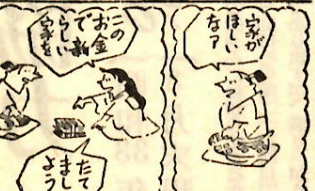 家が
ほしい
なア
この
お金
で新
らしい
家を
たて
まし
よう